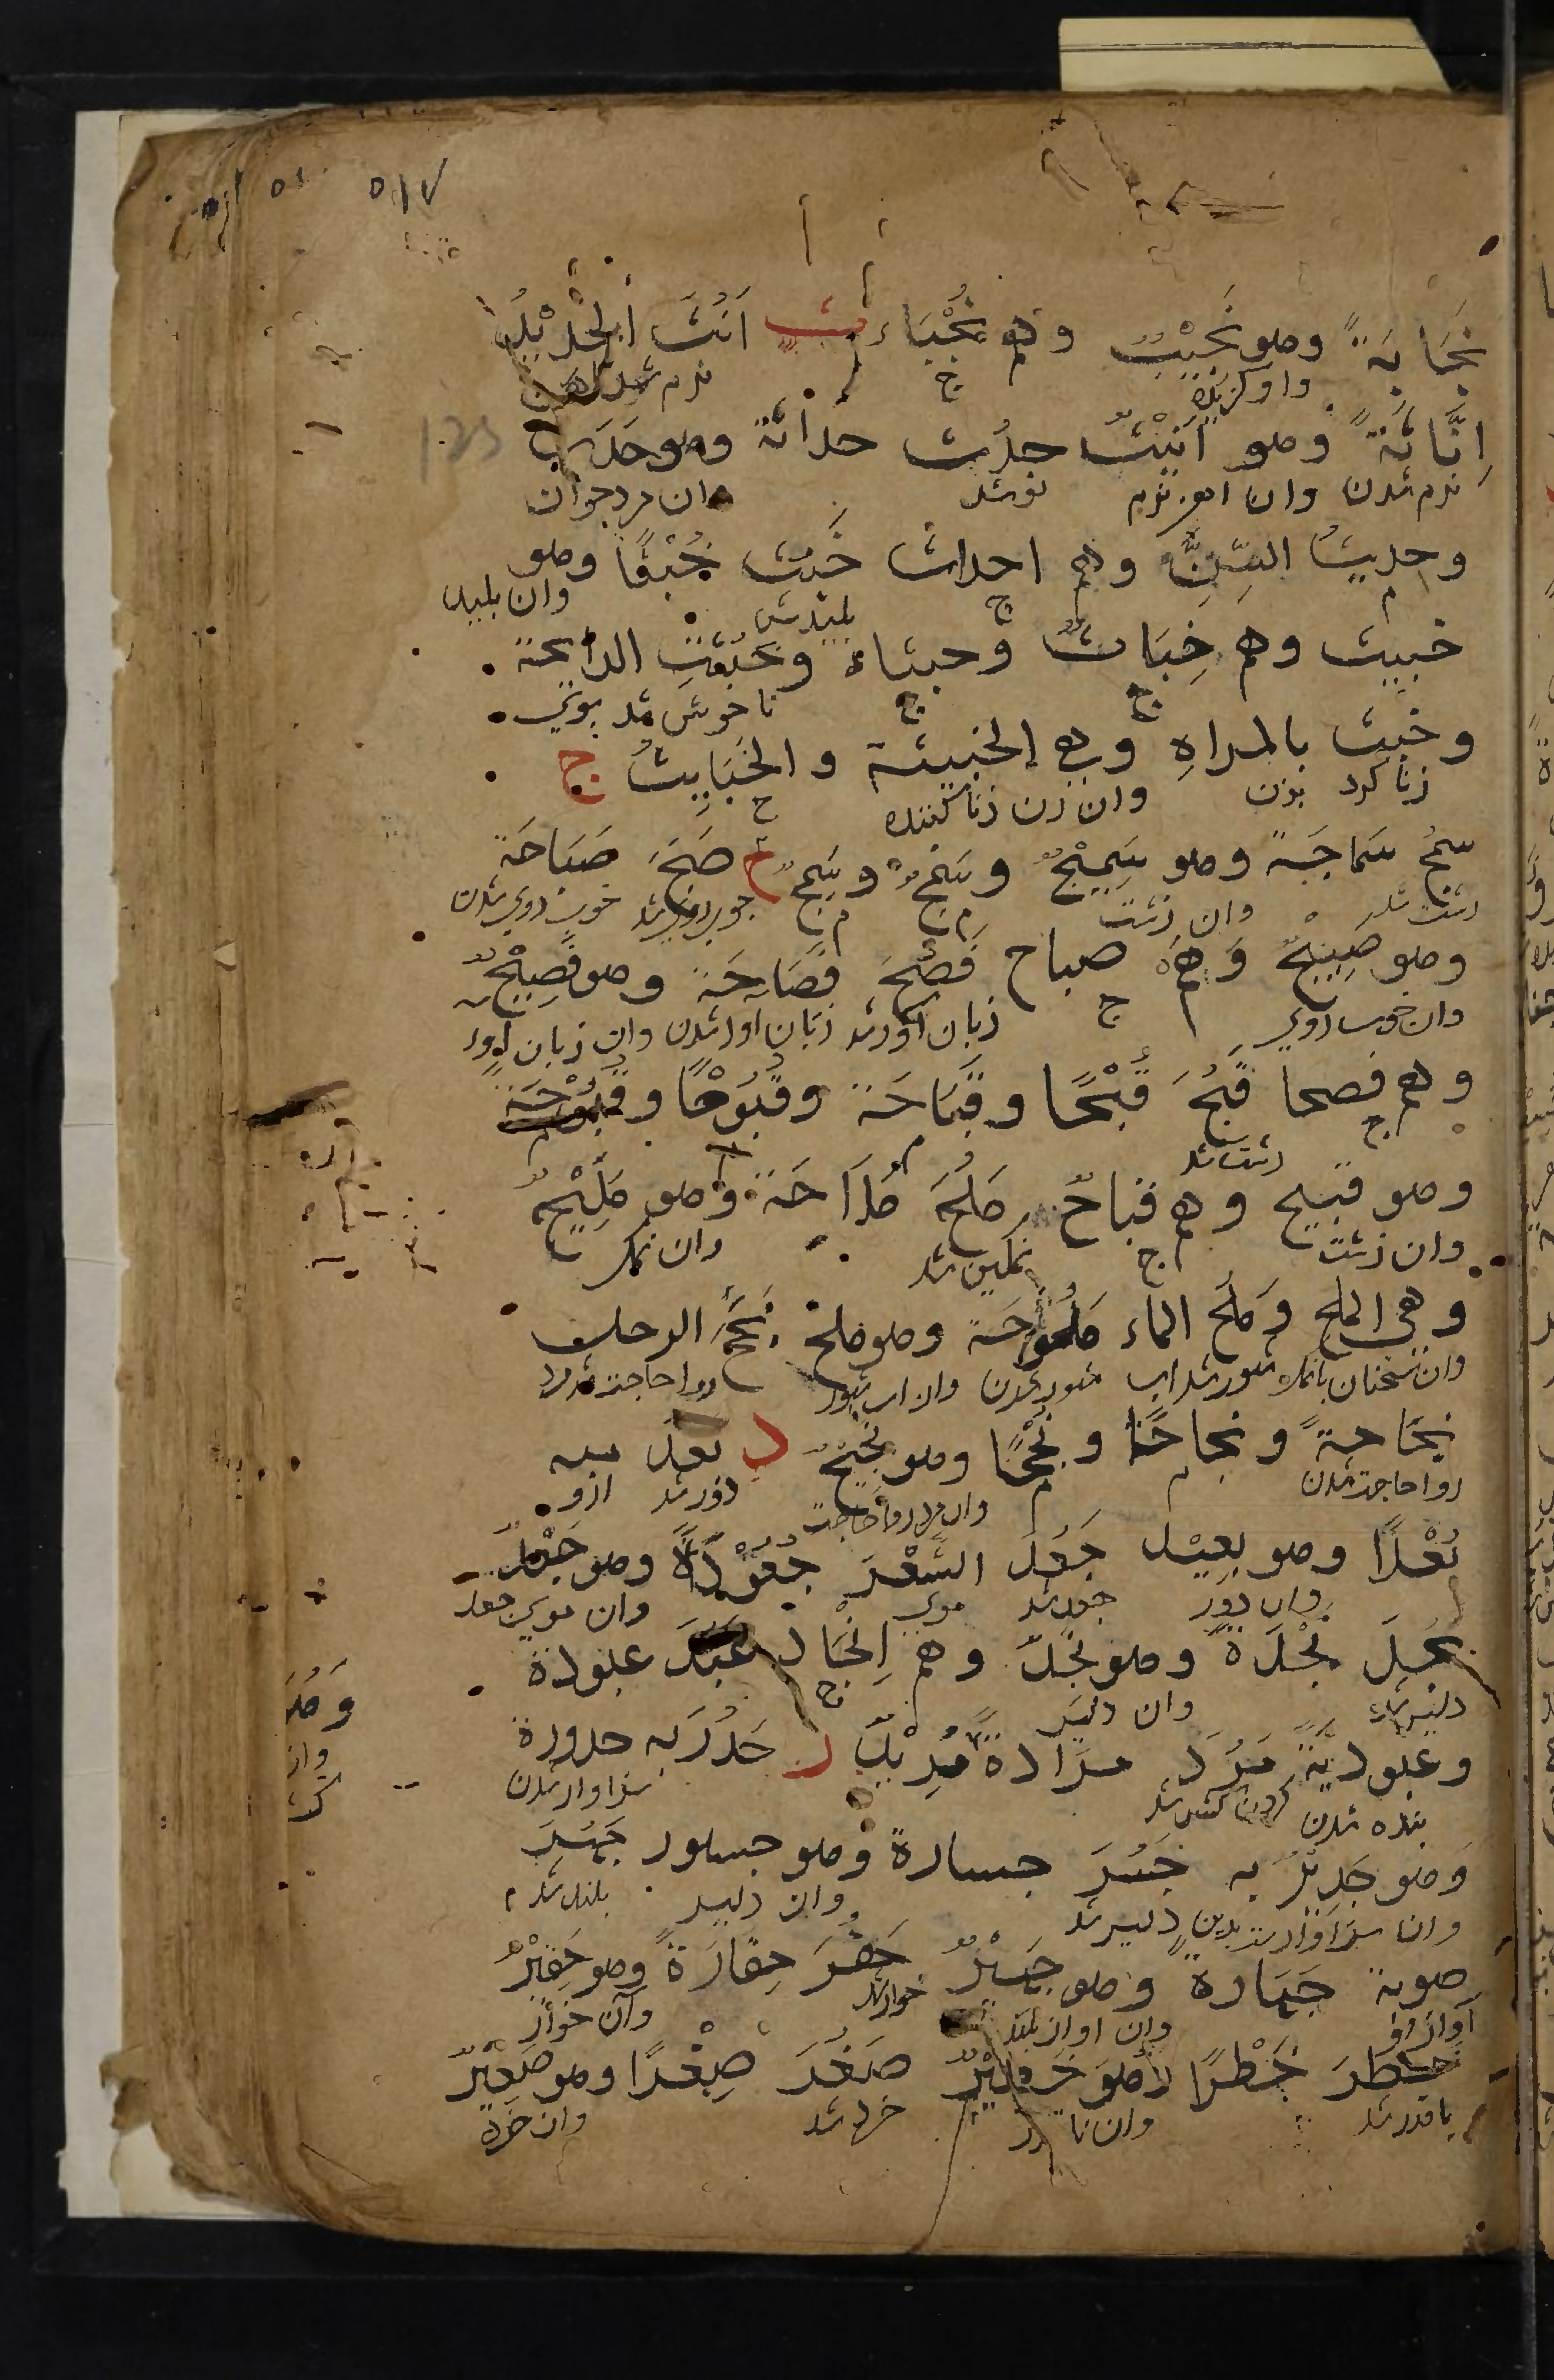 ٥١٧
نَجَابَةً وهو نَجِيْبٌ وهم نُجَبَاء ث اَنُثَ الحَدِيْدُ
واو گزیده ج نرم شد آهن
اِنَاثَةً وهو اَنِيْثٌ حدُث حداثة وهو حَدَث
نرم شدن وان آهن نرم نو شد وان مرد جوان
وحديثُ السِّنِّ وهم احداث خَبُث خُبْثًا وهو
م ج پلید شد وان پلید
خبيث وهم خِبَاثٌ وخبثاء وخَبُثَتِ الرايحة
ج ج ناخوش شد بوی
وخبث بالمراةِ وهي الخبيثة والخَبَايِثُ ج
زنا کرد بزن وان زن زنا کننده ج
سمُج سَمَاجَةً وهو سَمِيْجٌ وسَمْجٌ وسَمِجٌ ح صَبُحَ صَبَاحَة
زشت شد وان زشت م م خوب روی شد خوب روی شدن
وهو صَبِيْحٌ وَهم صباح فَصُحَ فَصَاحَة وهو فَصِيْحٌ
وان خوب روی ج زبان آور شد زبان آور شدن وان زبان آور
وهم فصحا قَبُحَ قُبْحًا وقَبَاحَة وقُبُوْحًا وقُبُوْحَة
ج زشت شد م م
وهو قبيح وهم قباحٌ مَلُحَ مَلَاحَة وهو مَلِيْحٌ
وان زشت ج نمکین شد وان نمک
وهي الملح وَمَلُح الماء مَلُوحَة وهو ملح نَجُحَ الرجل
وان سخنان بانمک شور شد آب شور شدن وان آب شور روا حاجت شد مرد
نَجَاحةً ونجاحًا ونُجْحًا وهو نَجِيْحٌ د بعد منه
روا حاجت شدن م م وان مرد روا حاجت دور شد ازو
بُعْدًا وهو بعيد جَعُدَ الشَّعْرَ جُعُوْدَةً وهو جَعْدٌ
وان دور جعد شد موی وان موی جعد
نَجُدَ نَجْدَةً وهو نَجْدٌ وهم اَنْجَاد عَبُدَ عبودة
دلیر شد وان دلیر ج
وعُبوديَّةً مَرُدَ مرادة مَرِيْدٌ ر جَدُرَ به جدورة
بنده شدن گردن کش شد سزاوار شدن
وهو جَدِيْرٌ به جَسُرَ جسارة وهو جسور جَهُرَ
وان سزاوارست بدین دلیر شد وان دلیر بلند شد
صوته جَهَارة وهو جَهِيْرٌ حَقُرَ حِقَارَةً وهو حَقِيْرٌ
آواز او وان آواز بلند خوار شد وآن خوار
خطرَ خَطْرًا وهو خَطِيْرٌ صَغُرَ صِغْرًا وهو صَغِيْرٌ
باقدر شد وان با قدر خرد شد وان خرد